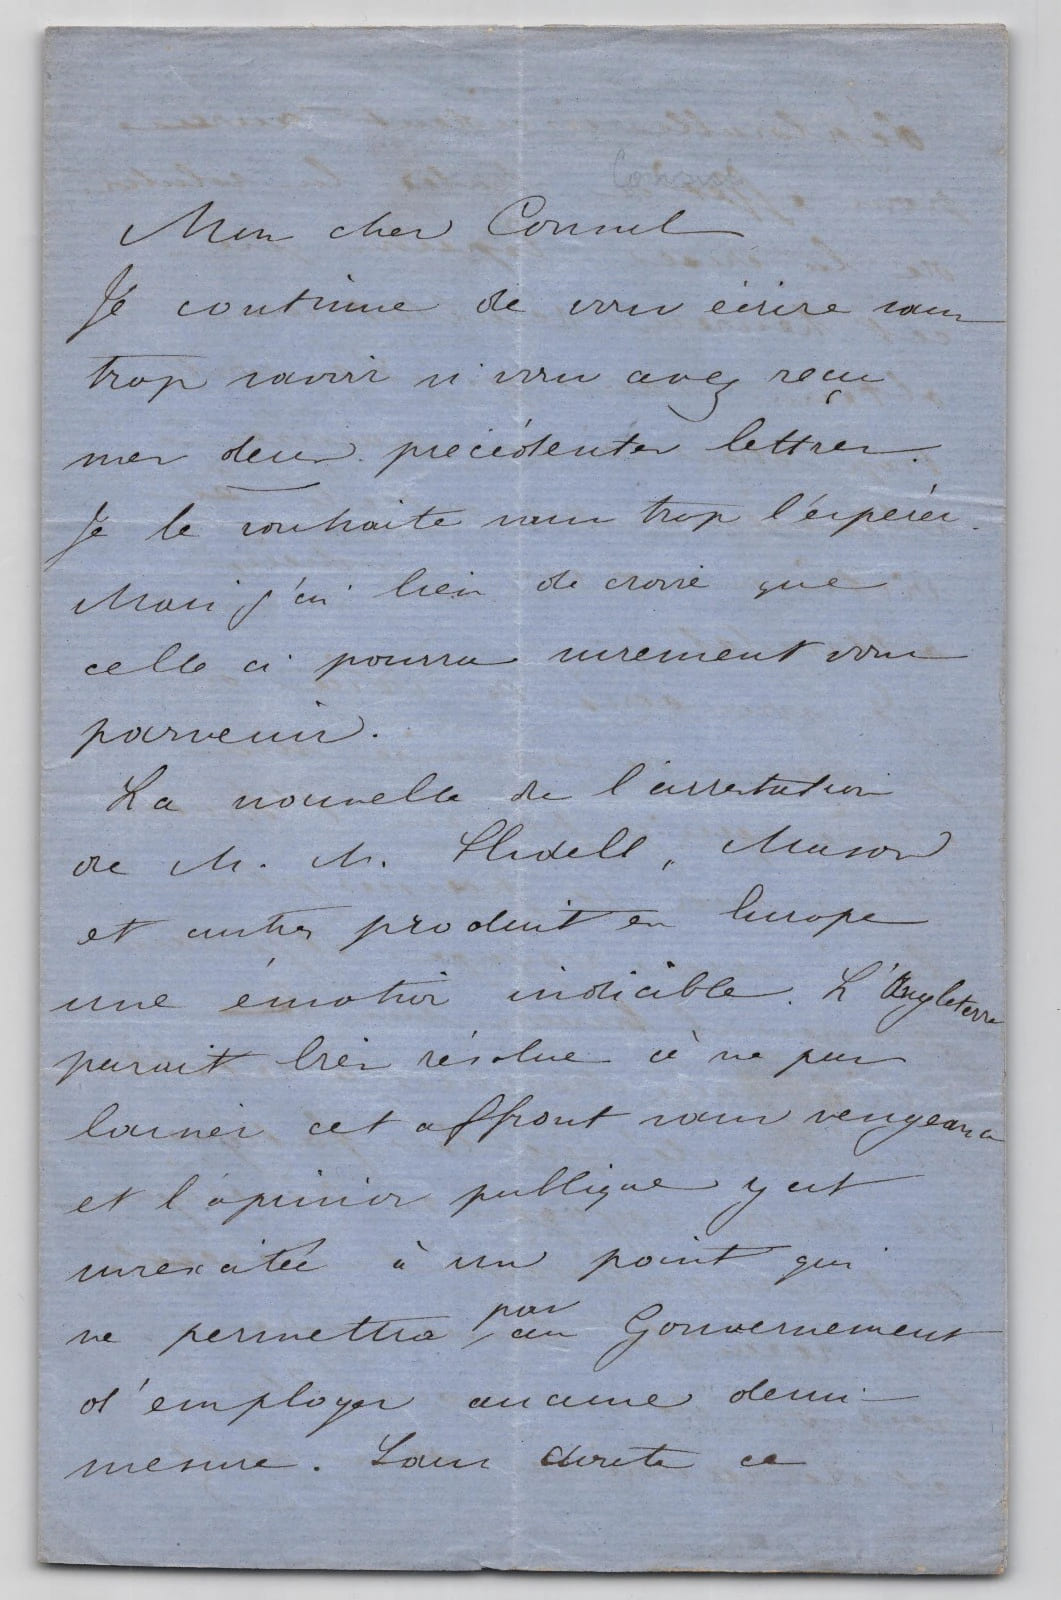 Mon cher Consul
Je continue de vous écrire sans
trop savoir si vous avez reçu
mes deux précédentes lettres.
Je le souhaite sans trop l'espérer.
Mais j'ai lieu de croire que
celle ci pourra surement vous
parvenir.
La nouvelle de l'arrestation
de M. M. Slidell, Mason
et autres produit en Europe
une émotion indicible. L'Angleterre
parait très résolue à ne pas
laisser cet affront sans vengeance
et l'opinion publique y est
surexcitée à un point qui
ne permettra pas au Gouvernement
d'employer aucune demi
mesure. Sans doute ce